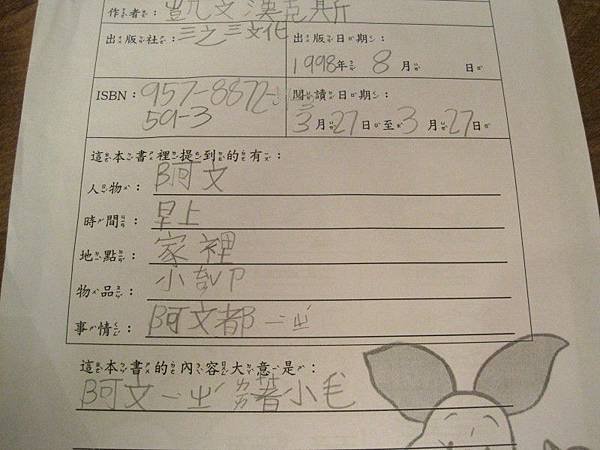 作者：凱文漢克斯
出版社：三之三文化 出版日期：
1998年 8月 日
ISBN：957-8872- 閱讀日期：
59-3 3月27日至3月27日
這本書裡提到的有：
人物：阿文
時間：早上
地點：家裡
物品：小
事情：阿文都一ㄓˊ
這本書的內容大意是：
阿文一ㄓˊ ㄌㄚ著小毛